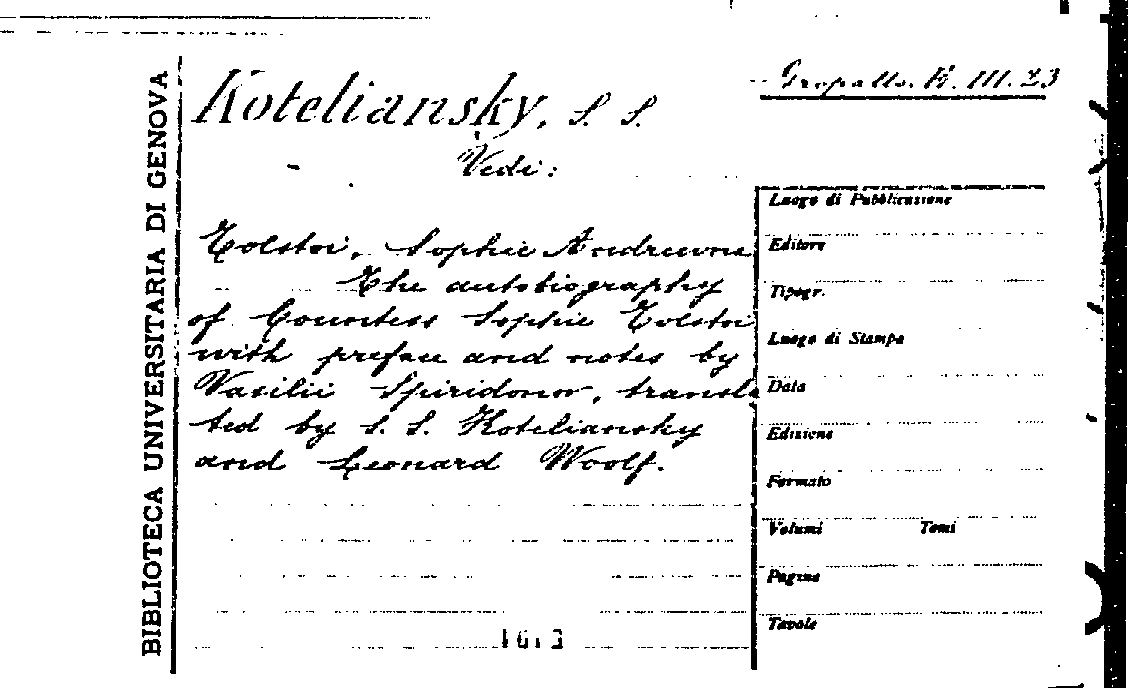 BIBLIOTECA UNIVERSITARIA DI GENOVA
Gropallo. E. III. 23
Koteliansky, S. S.
Vedi:
Tolstoi, Sophie Andrewne
The autobiography
of Countess Sophie Tolstoi
with preface and notes by
Vasilii Spiridonov, transla
ted by S. S. Koteliansky
and Leonard Woolf.
Luogo di Pubblicazione
Editore
Tipogr.
Luogo di Stampa
Data
Edizione
Formato
Volumi Tomi
Pagine
Tavole